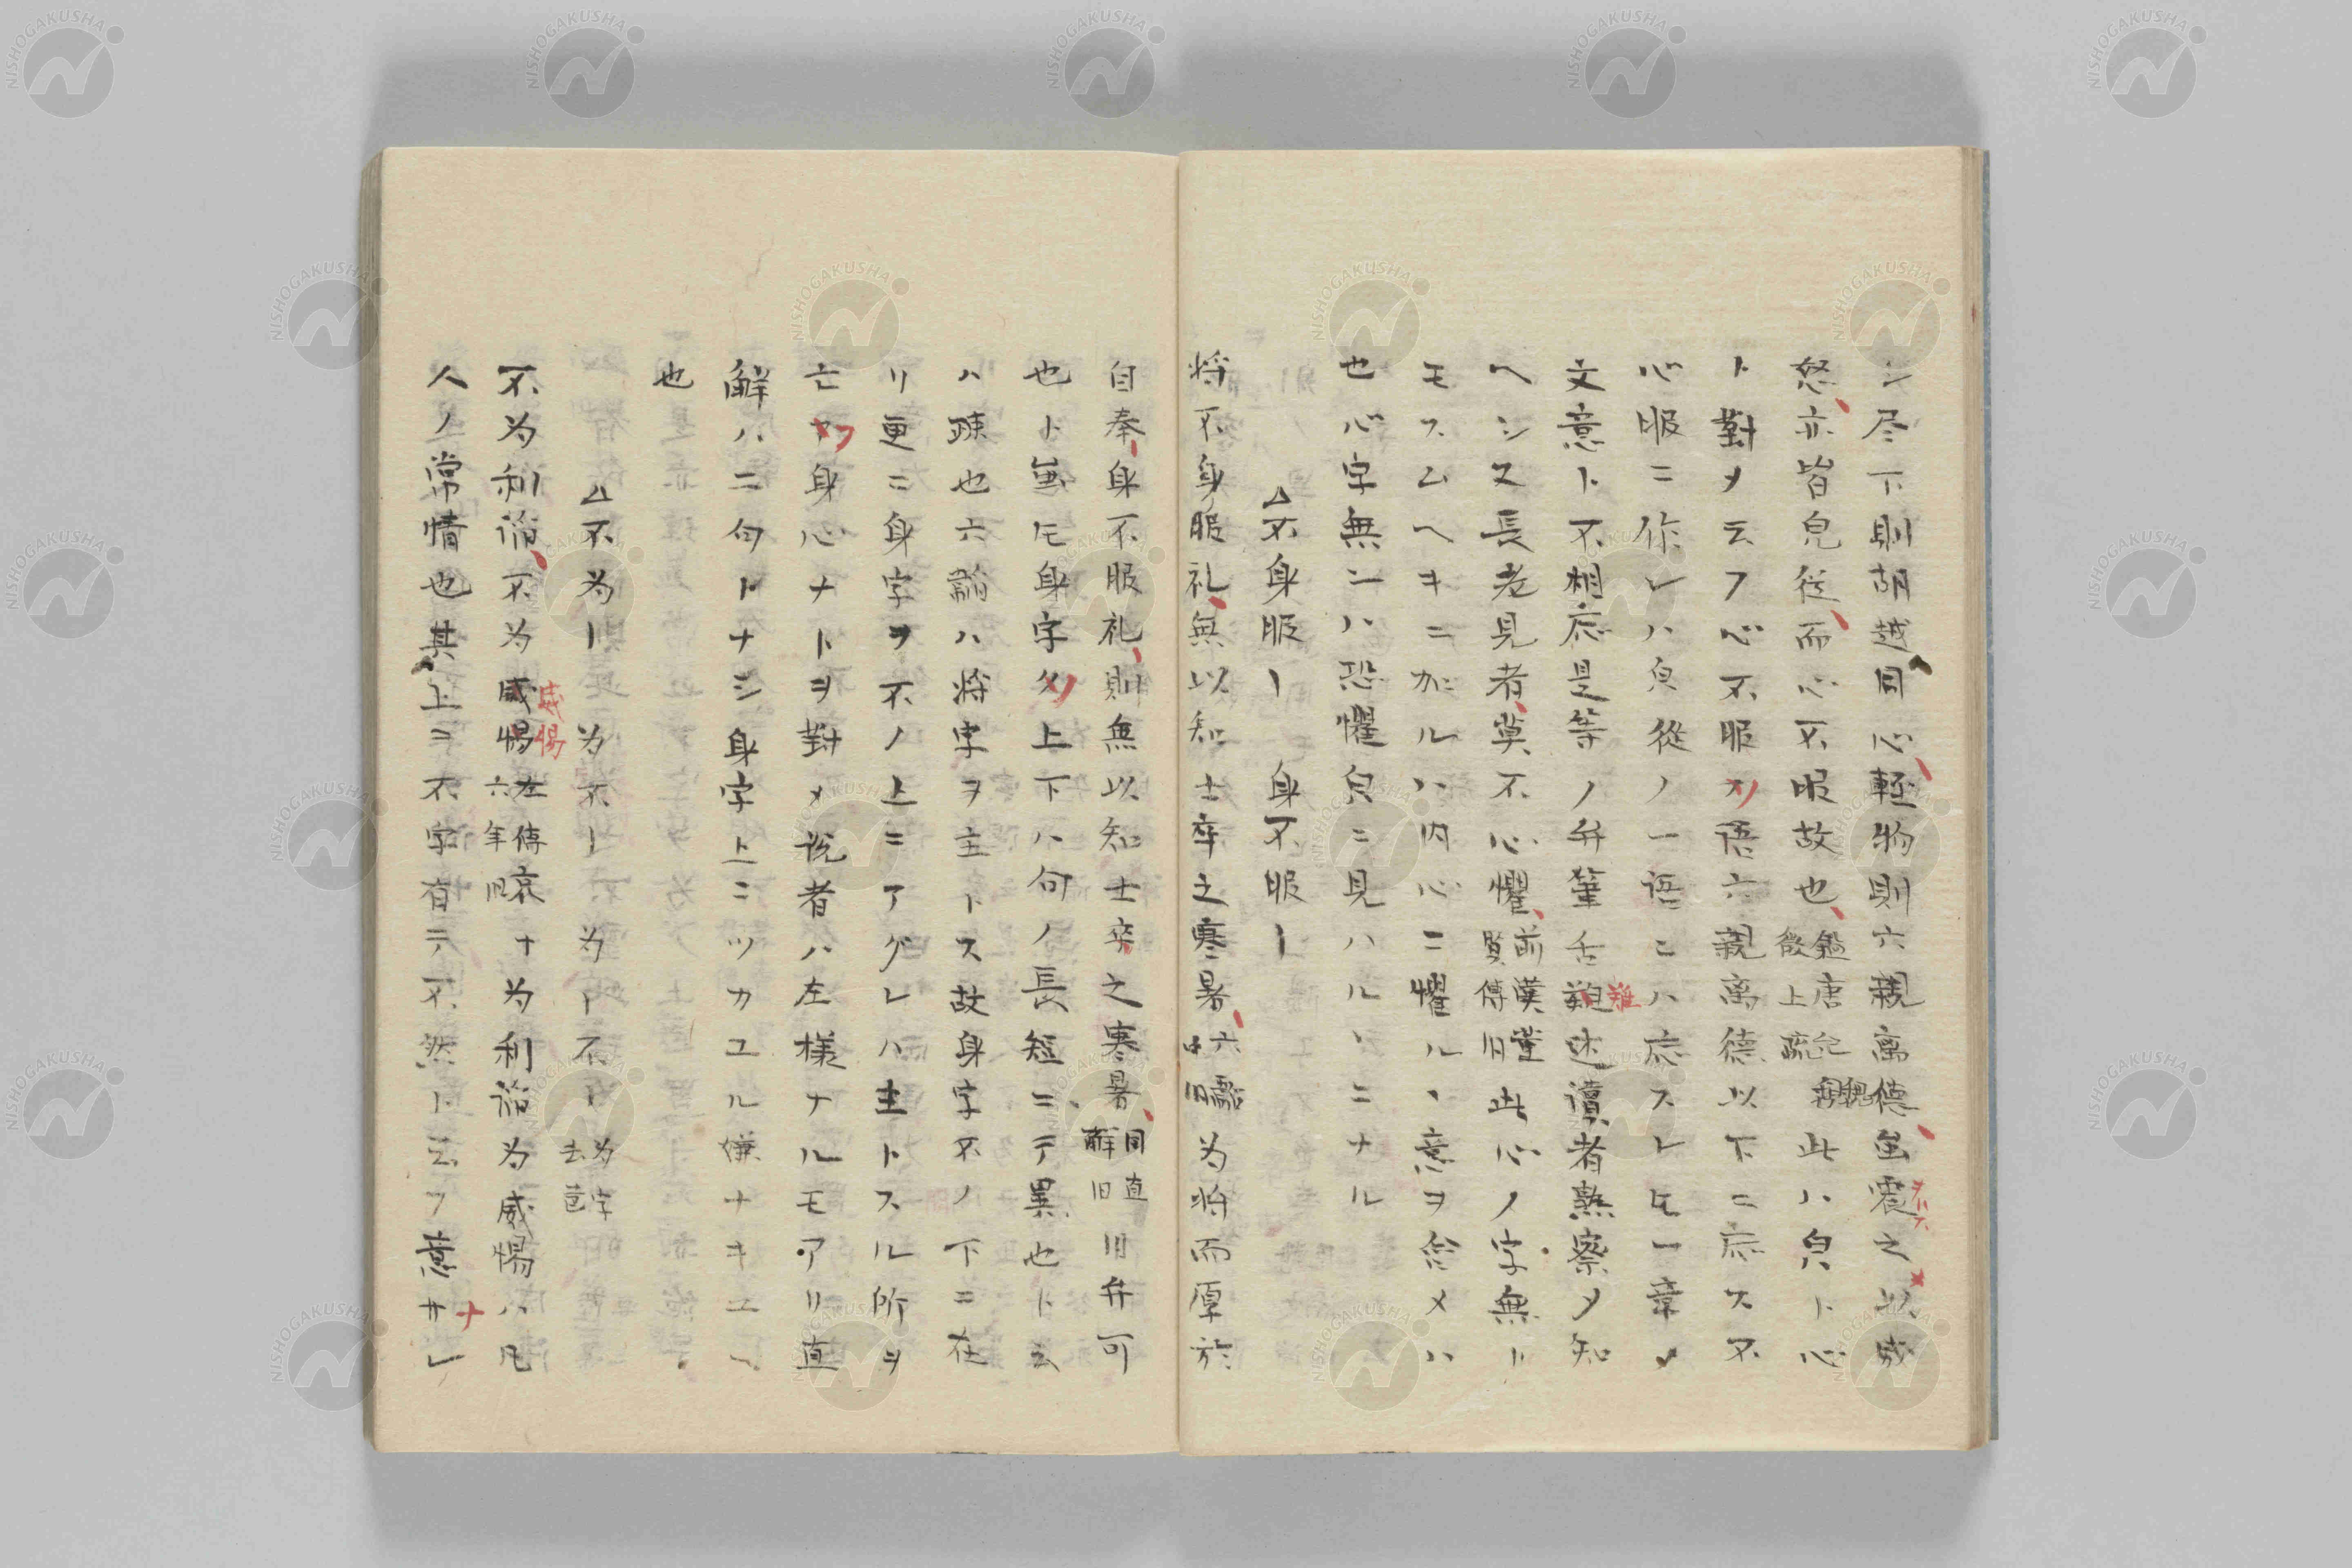 シ尽下則胡越同心、軽物則六親離徳、虽震之以威
怒、亦皆皃従、而心不服故也、鑑唐紀魏徴上疏 此ハ皃ト心
ト對メ云フ心不服ノ語六親离徳以下ニ応ス不
心服ニ作レハ皃從ノ一語ニハ応スレ𪜈一章ノ
文意ト不相応是等ノ弁筆舌難述讀者熟察メ知
ヘシ又長老見者、莫不心懼、前漢董賢傳旧 此心ノ字無ト
モスムヘキニ加ルハ内心ニ懼ルヽ意ヲ含メハ
也心字無ンハ恐懼皃ニ見ハルヽニナル
△不身服ー 身不服ー
将不身服礼、無以知士卒之寒暑、六韜 旧 为将而厚於
自奉、身不服礼、則無以知士卒之寒暑、同直解旧 旧弁可
也ト虽𪜈身字ノ上下ハ句ノ長短ニテ異也ト云
ハ踈也六韜ハ将字ヲ主トス故身字不ノ下ニ在
リ更ニ身字ヲ不ノ上ニアグレハ主トスル所ヲ
亡フ身心ナトヲ對メ説者ハ左様ナルモアリ直
解ハ二句トナシ身字上ニツカユル嫌ナキユヘ
也
△不为ー 为不ー 不为ー不ー 为字去声
不为利諂、不为威惕 威惕 左傳哀六年旧 十为利諂为威惕ハ凡
人ノ常情也其上ニ不字有テ不然ト云フ意ナレ